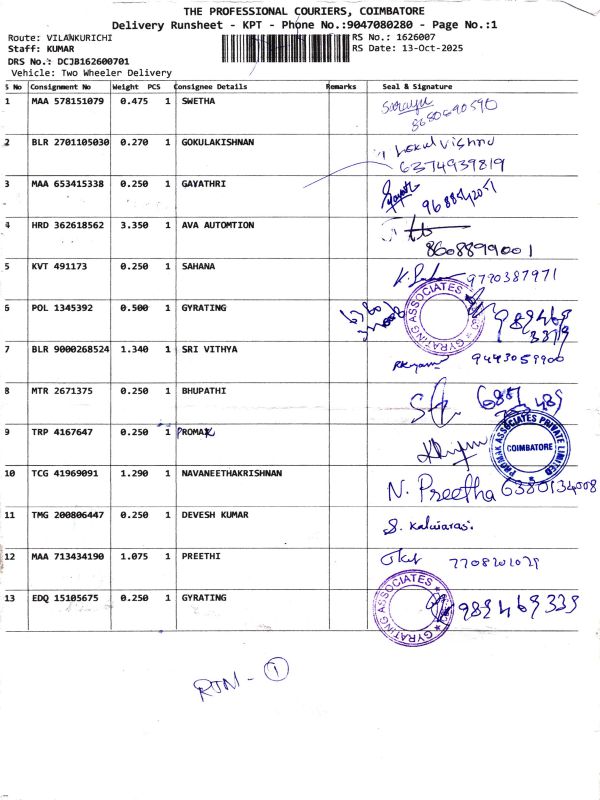 THE PROFESSIONAL COURIERS, COIMBATORE
Delivery Runsheet - KPT - Phone No.:9047080280 - Page No.:1
Route: VILANKURICHI RS No.: 1626007
Staff: KUMAR RS Date: 13-Oct-2025
DRS No.: DCJB162600701
Vehicle: Two Wheeler Delivery
S No Consignment No Weight PCS Consignee Details Remarks Seal & Signature
1 MAA 578151079 0.475 1 SWETHA Sarayu
8680690590
2 BLR 2701105030 0.270 1 GOKULAKISHNAN
6374939819
3 MAA 653415338 0.250 1 GAYATHRI
4 HRD 362618562 3.350 1 AVA AUTOMTION
8608899001
5 KVT 491173 0.250 1 SAHANA 9790387971
6 POL 1345392 0.500 1 GYRATING GYRATING ASSOCIATES
7 BLR 9000268524 1.340 1 SRI VITHYA 9443059900
8 MTR 2671375 0.250 1 BHUPATHI
9 TRP 4167647 0.250 1 PROMAK PROMAK ASSOCIATES PRIVATE LIMITED COIMBATORE
10 TCG 41969091 1.290 1 NAVANEETHAKRISHNAN N. Preetha 6380134008
11 TMG 200806447 0.250 1 DEVESH KUMAR S. Kalaiarasi
12 MAA 713434190 1.075 1 PREETHI
13 EDQ 15105675 0.250 1 GYRATING GYRATING ASSOCIATES
RTN - 1